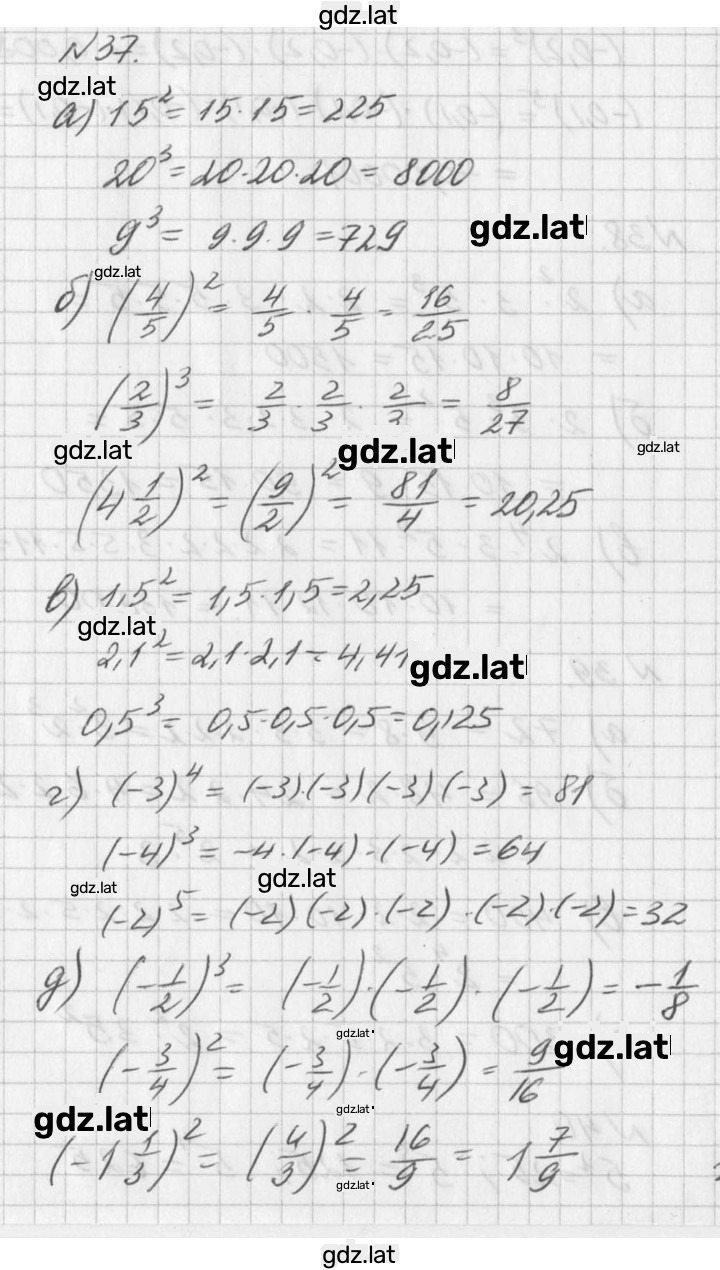 gdz.lat
№37.
gdz.lat
а) 15² = 15·15 = 225
20³ = 20·20·20 = 8000
9³ = 9·9·9 = 729
gdz.lat
gdz.lat
б) (4/5)² = 4/5 · 4/5 = 16/25
(2/3)³ = 2/3 · 2/3 · 2/3 = 8/27
gdz.lat
gdz.lat
gdz.lat
(4 1/2)² = (9/2)² = 81/4 = 20,25
в) 1,5² = 1,5·1,5 = 2,25
gdz.lat
2,1² = 2,1·2,1 = 4,41
gdz.lat
0,5³ = 0,5·0,5·0,5 = 0,125
г) (-3)⁴ = (-3)·(-3)(-3)(-3) = 81
(-4)³ = -4·(-4)·(-4) = 64
gdz.lat
gdz.lat
(-2)⁵ = (-2)(-2)·(-2)·(-2)·(-2) = 32
д) (-1/2)³ = (-1/2)·(-1/2)·(-1/2) = -1/8
gdz.lat
(-3/4)² = (-3/4)·(-3/4) = 9/16
gdz.lat
gdz.lat
gdz.lat
(-1 1/3)² = (4/3)² = 16/9 = 1 7/9
gdz.lat
gdz.lat